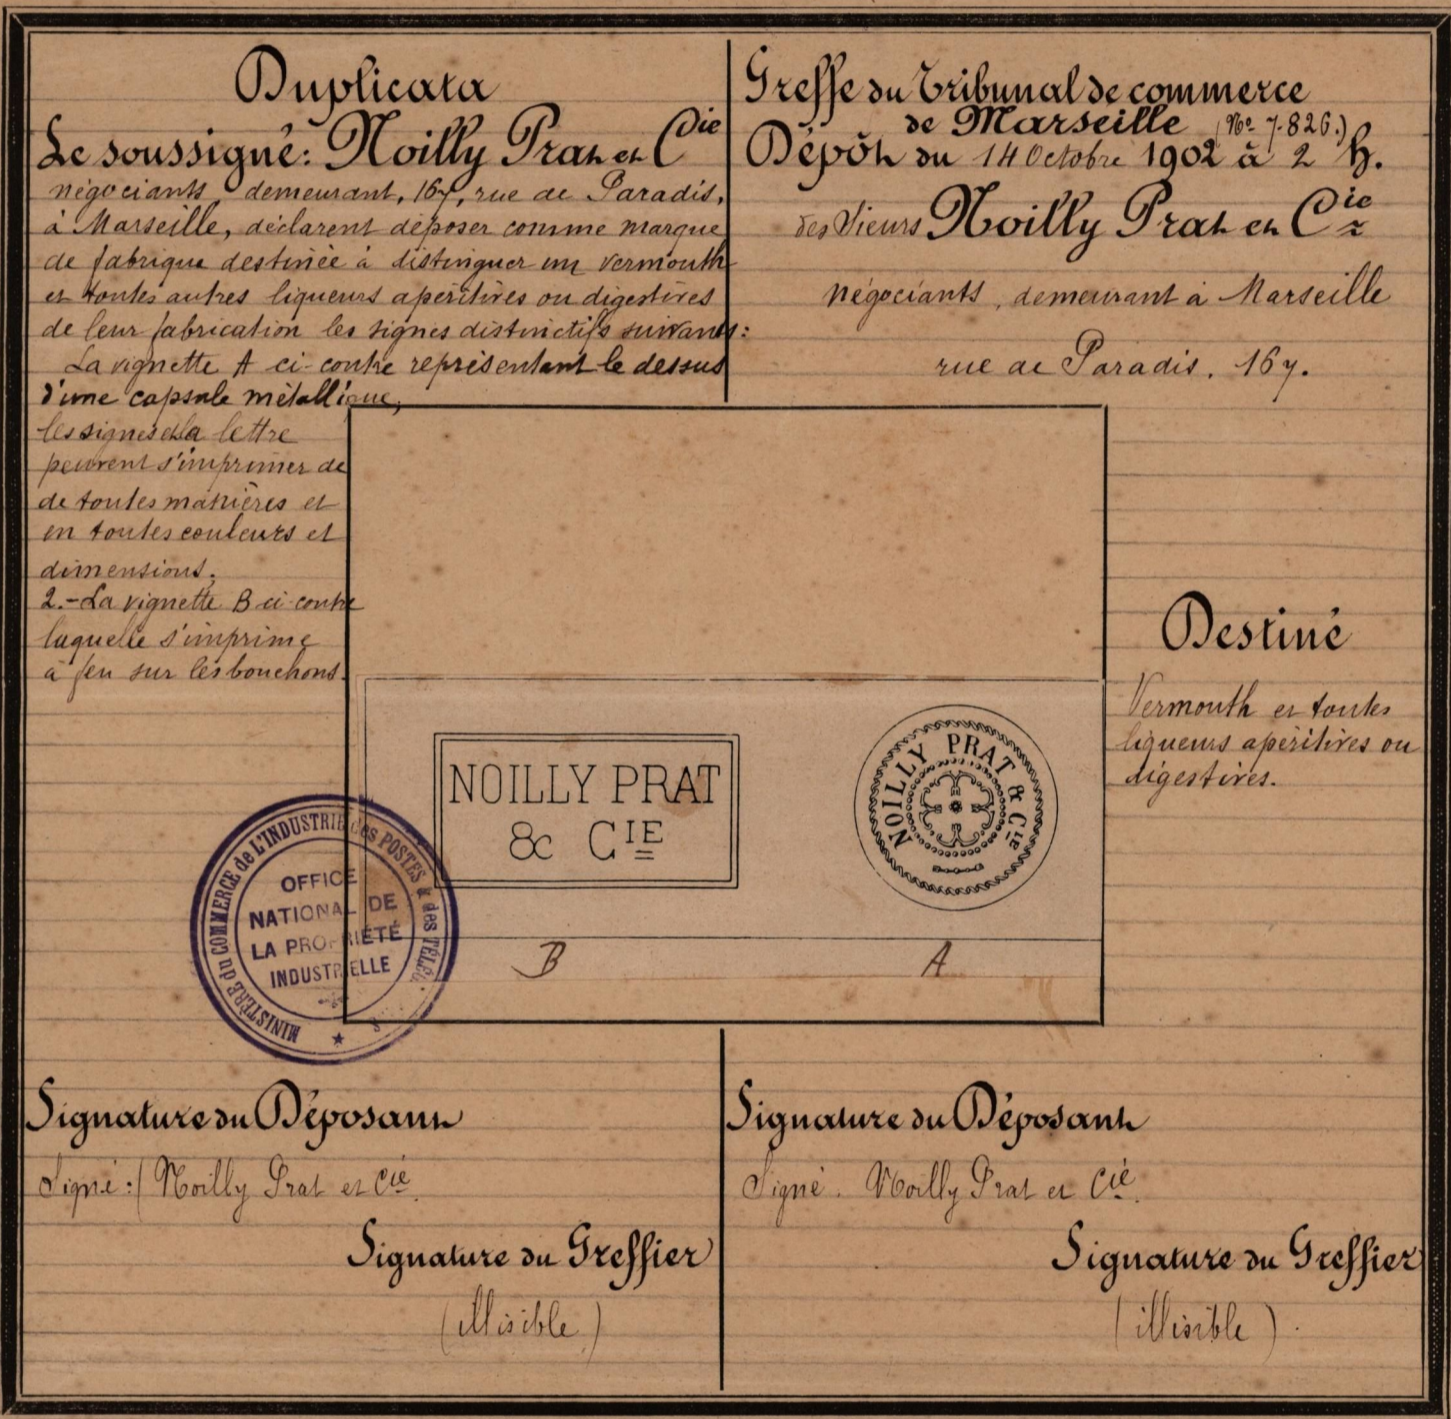 Duplicata
Le soussigné: Noilly Prat et Cie
négociants demeurant, 167, rue de Paradis,
à Marseille, déclarent déposer comme marque
de fabrique destinée à distinguer un vermouth
et toutes autres liqueurs apéritives ou digestives
de leur fabrication les signes distinctifs suivants:
La vignette A ci-contre représentant le dessus
d'une capsule métallique,
les signes et la lettre
peuvent s'imprimer de
de toutes manières et
en toutes couleurs et
dimensions.
2.- La vignette B ci-contre
laquelle s'imprime
à feu sur les bouchons.
Greffe du Tribunal de commerce
de Marseille (No 7.826.)
Dépôt du 14 Octobre 1902 à 2 h.
des Sieurs Noilly Prat et Cie
négociants, demeurant à Marseille
rue de Paradis. 167.
Destiné
Vermouth et toutes
liqueurs apéritives ou
digestives.
NOILLY PRAT
& CIE
NOILLY PRAT & Cie
B A
MINISTÈRE du COMMERCE de L'INDUSTRIE des POSTES & des TÉLÉG.
OFFICE
NATIONAL DE
LA PROPRIÉTÉ
INDUSTRIELLE
Signature du Déposant
Signé: Noilly Prat et Cie.
Signature du Greffier
(illisible)
Signature du Déposant
Signé. Noilly Prat et Cie.
Signature du Greffier
(illisible).